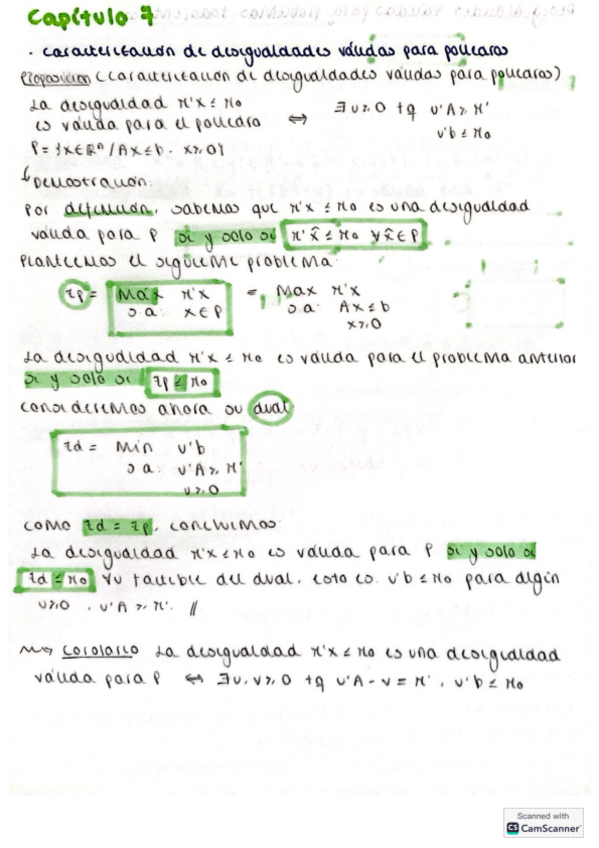 Capítulo 7
· caracterización de desigualdades válidas para poliedros
Proposición (caracterización de desigualdades válidas para poliedros)
La desigualdad π'x ≤ π₀ ⇔ ∃u ≥ 0 tq u'A ≥ π'
es válida para el poliedro u'b ≤ π₀
P = {x ∈ ℝⁿ / Ax ≤ b, x ≥ 0}
Demostración:
Por definición, sabemos que π'x ≤ π₀ es una desigualdad
válida para P si y solo si π'x̂ ≤ π₀ ∀x̂ ∈ P
Planteemos el siguiente problema:
zp = Máx π'x = Max π'x
s.a: x ∈ P s.a: Ax ≤ b
x ≥ 0
La desigualdad π'x ≤ π₀ es válida para el problema anterior
si y solo si zp ≤ π₀
consideremos ahora su dual
zd = Min u'b
s.a: u'A ≥ π'
u ≥ 0
como zd = zp, concluimos:
La desigualdad π'x ≤ π₀ es válida para P si y solo si
zd ≤ π₀ ∀u factible del dual, esto es: u'b ≤ π₀ para algún
u ≥ 0, u'A ≥ π'. //
Corolario La desigualdad π'x ≤ π₀ es una desigualdad
válida para P ⇔ ∃u, v ≥ 0 tq u'A - v = π', u'b ≤ π₀
Scanned with
CS CamScanner